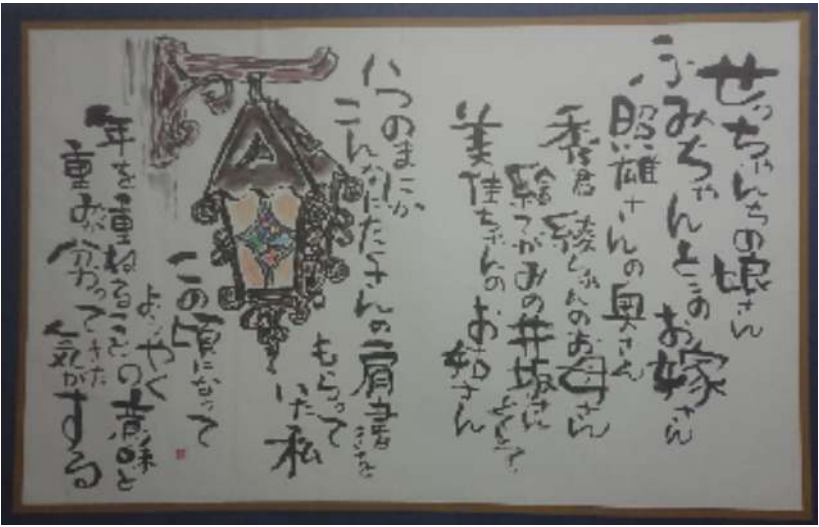 せっちゃんちの娘さん
ふみちゃんとこのお嫁さん
照雄さんの奥さん
秀君 綾ちゃんのお母さん
絵てがみの井坂さん そして、
美佳ちゃんのお姑さん
いつのまにか
こんなにたくさんの肩書きを
もらって
いた私
この頃になって
ようやく
年を重ねることの意味と
重みが分ってきた
気がする